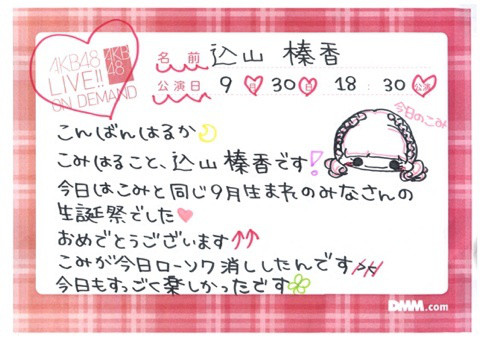 AKB48
LIVE!!
ON DEMAND
AKB
48
名前 込山 榛香
公演日 9月30日 18:30公演
今日のこみ
こんばんはるか
こみはること、込山榛香です!
今日はこみと同じ9月生まれのみなさんの
生誕祭でした
おめでとうございます↑↑
こみが今日ローソク消ししたんです><
今日もすっごく楽しかったです
DMM.com